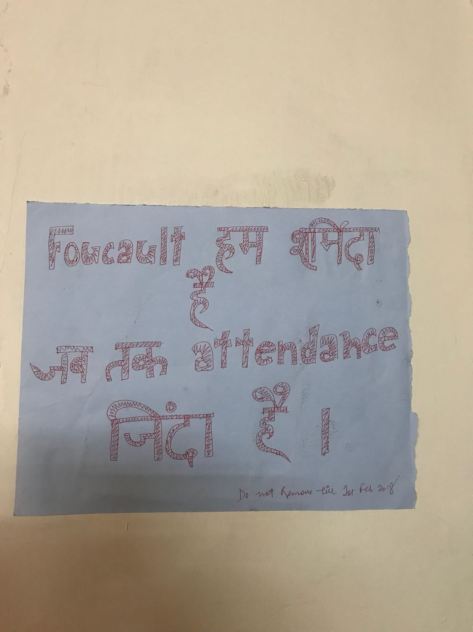 Foucault हम शर्मिंदा
हैं
जब तक attendance
जिंदा हैं ।
Do not Remove till 1st Feb 2018